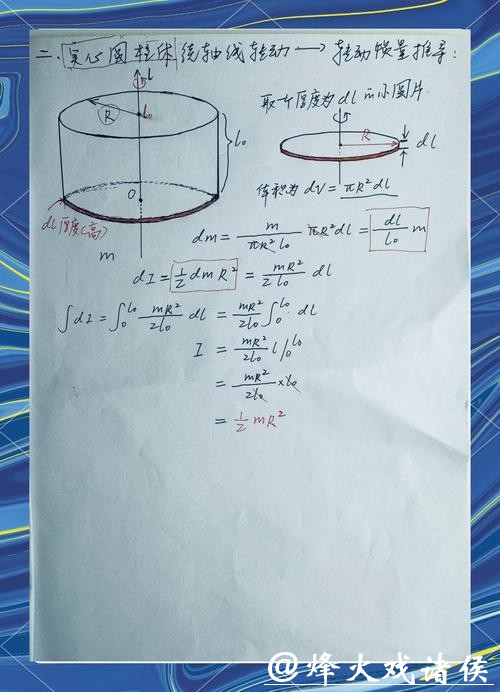 二、实心圆柱体绕轴线转动→转动惯量推导:
l
取一个厚度为dl的小圆片.
R
l₀
l₀
R
dl
O
体积为 dV = πR²dl
dl厚度(高)
m
dm = m/(πR²l₀) πR²dl = dl/l₀ m
dI = 1/2 dmR² = mR²/2l₀ dl
∫dI = ∫₀^l₀ mR²/2l₀ dl = mR²/2l₀ ∫₀^l₀ dl
I = mR²/2l₀ l|₀^l₀
= mR²/2l₀ × l₀
= 1/2 mR²
@烽火戏诸侯